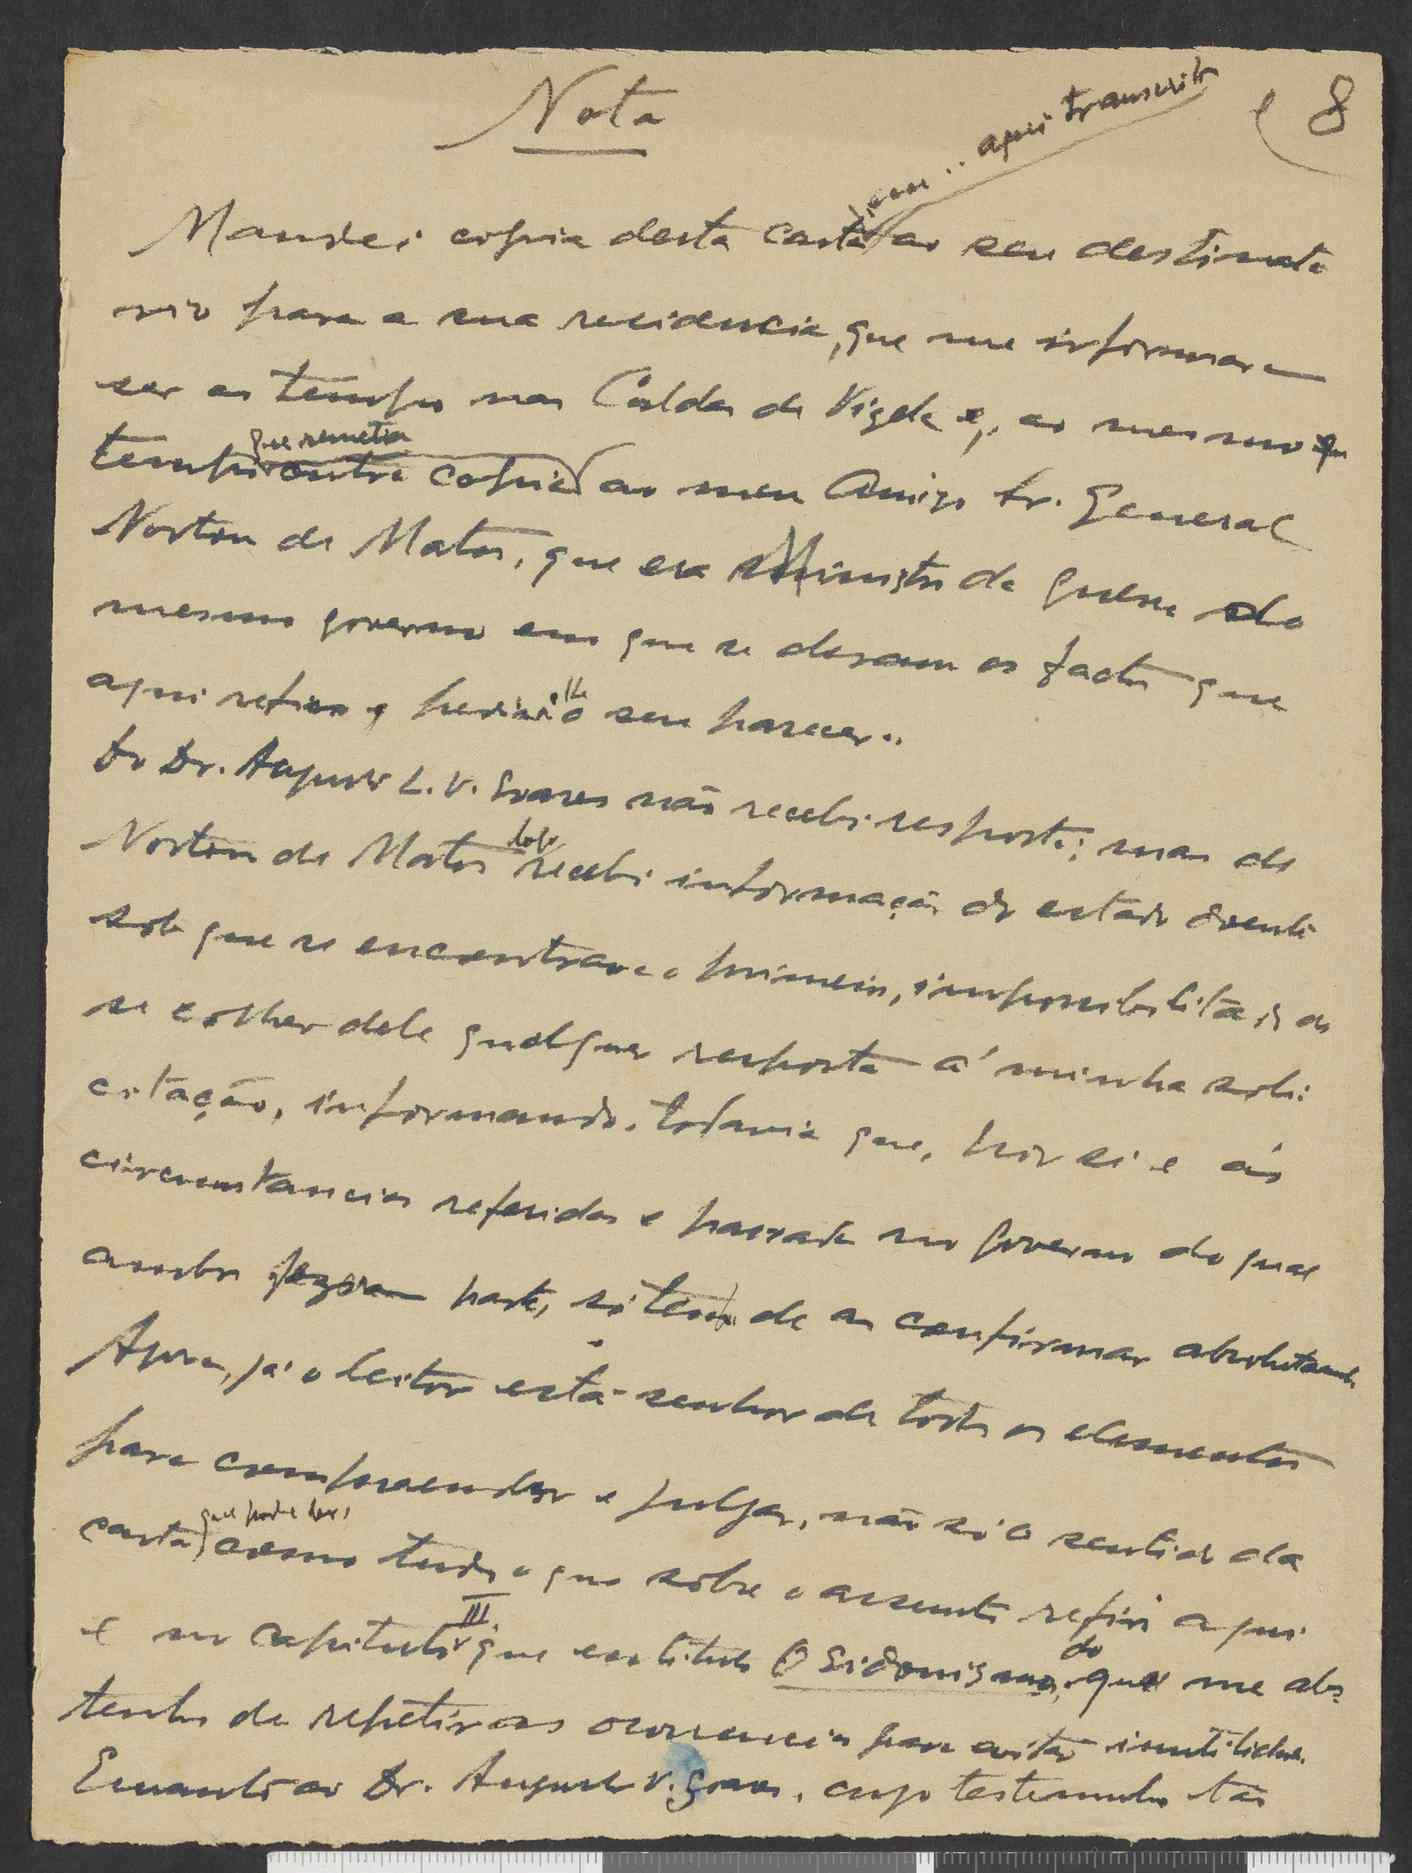 Nota
8
aqui transcrita
Mandei copia desta carta ao seu destinata
rio para a sua residencia, que me informaram
ser ao tempo nas Caldas de Vizela e, ao mesmo
que remetia
tempo outra copia ao meu Amigo Sr. General
Norton de Matos, que era Ministro da Guerra do
mesmo governo em que se deram os factos que
aqui refiro e pedindo-lhe o seu parecer..
Do Dr. Augusto L. V. Soares não recebi resposta; mas de
logo
Norton de Matos recebi informação do estado doente
sob que se encontrava o primeiro, impossibilitado de
se colher dele qualquer resposta á minha soli-
citação, informando, todavia que, por si e ás
circunstancias referidas e passadas no governo do qual
ambos fizeram parte, só tem de as confirmar absolutamte.
Agora, já o leitor está senhor de todos os elementos
para compreender e julgar, não só o sentido da
carta, como tudo o que sobre o assunto referi aqui
III
e no capitulo que entitulo O Sidonismo, que me abs-
do
tenho de repetir as ocorrencias para evitar inutilidades.
Enquanto ao Dr. Augusto V. Soares, cujo testemunho tão